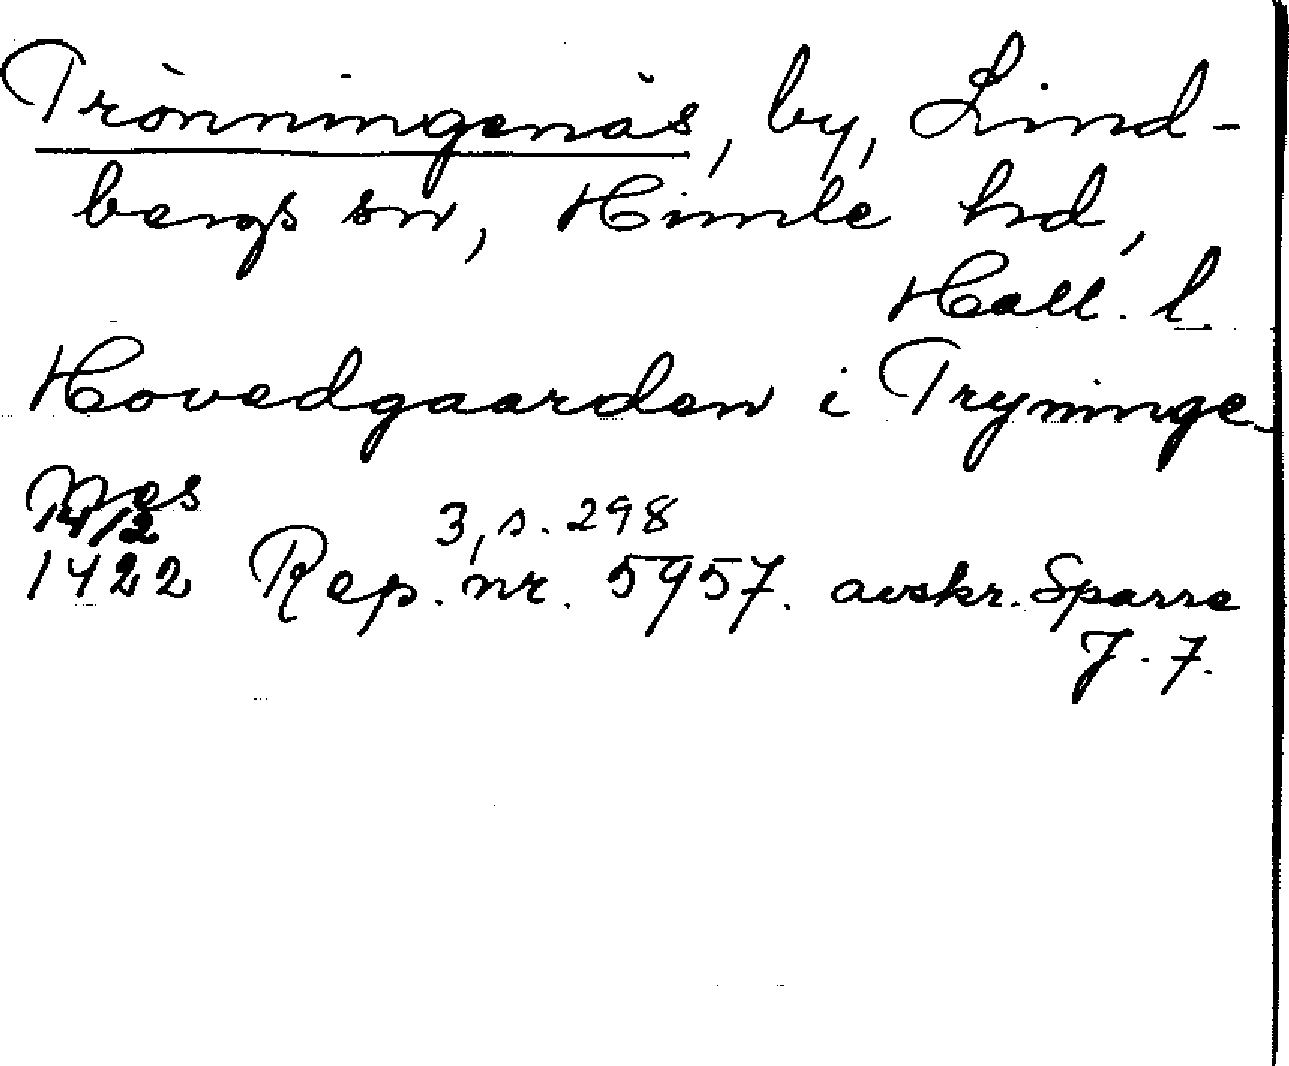 Trönningenäs, by, Lind-
bergs sn, Himle hd,
Hall. l.
Hovedgaarden i Tryninge
Nes
14/2
3, s. 298
1422 Rep. nr. 5957. avskr. Sparre
J. 7.